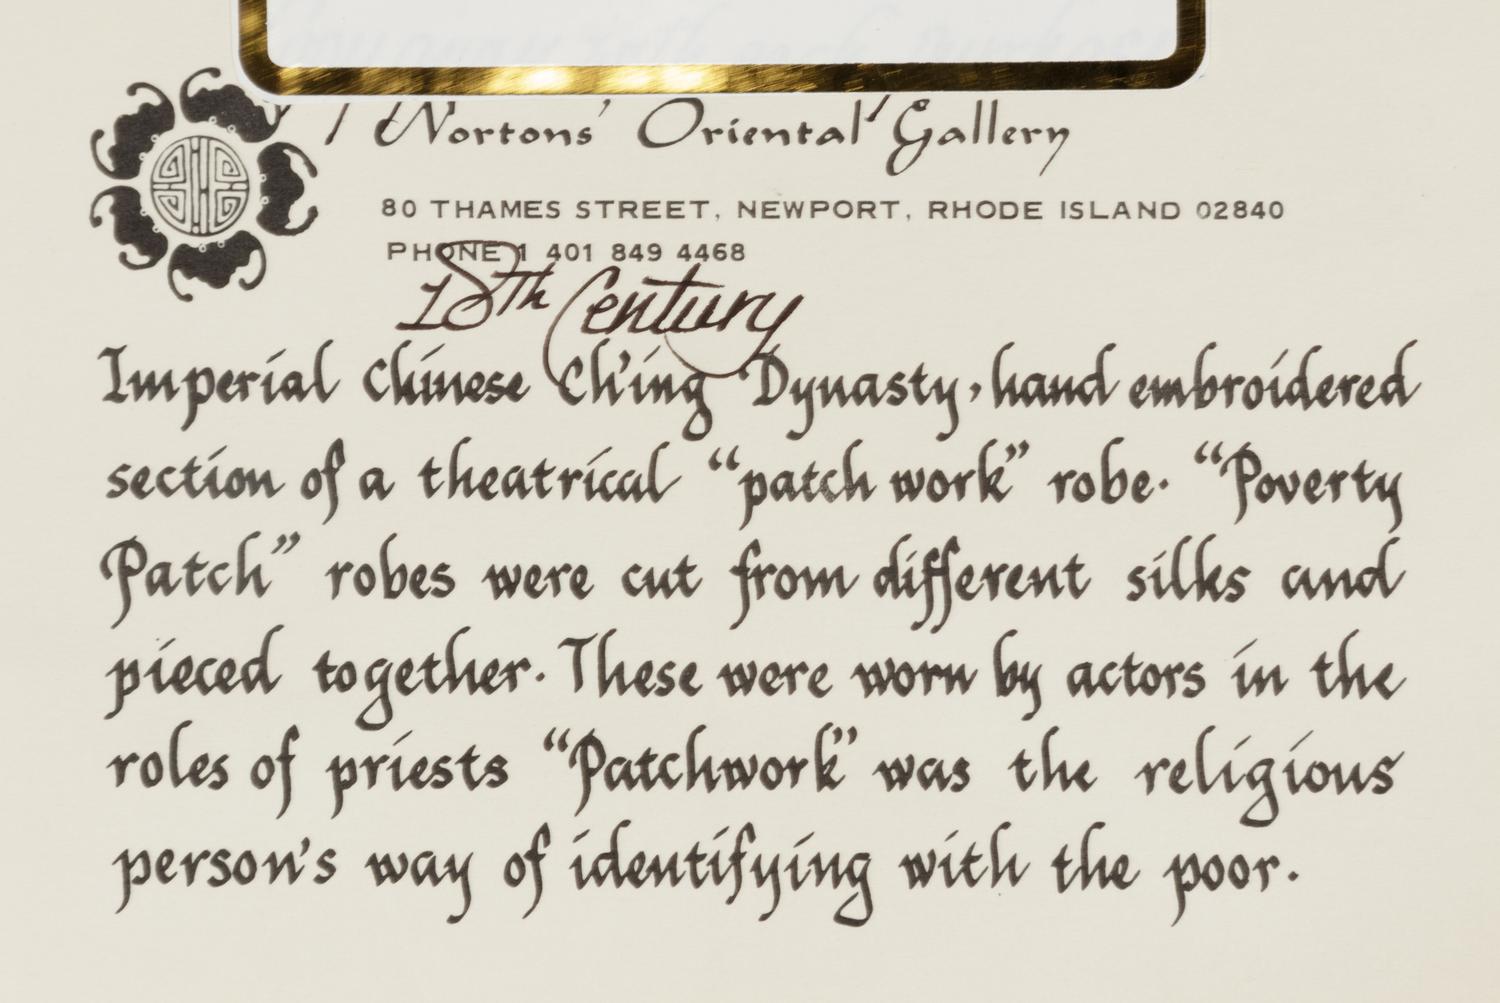 Nortons' Oriental Gallery
80 THAMES STREET, NEWPORT, RHODE ISLAND 02840
PHONE 1 401 849 4468
18th Century
Imperial Chinese Ch'ing Dynasty, hand embroidered
section of a theatrical “patch work” robe. “Poverty
Patch” robes were cut from different silks and
pieced together. These were worn by actors in the
roles of priests “Patchwork” was the religious
person's way of identifying with the poor.